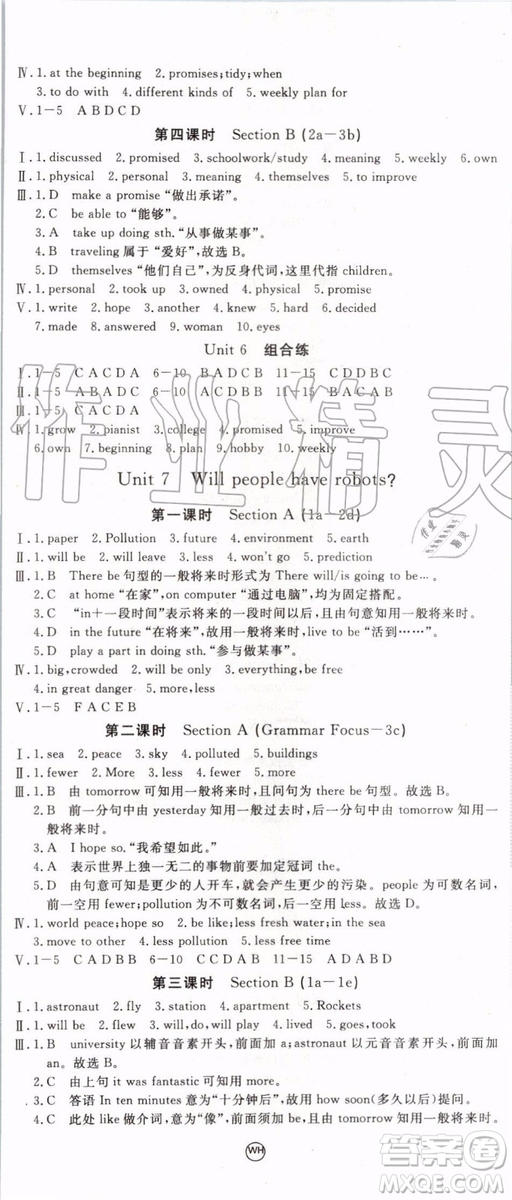 Ⅳ. 1. at the beginning 2. promises;tidy;when
3. to do with 4. different kinds of 5. weekly plan for
Ⅴ. 1－5 A B D C D
第四课时 Section B (2a－3b)
Ⅰ. 1. discussed 2. promised 3. schoolwork/study 4. meaning 5. weekly 6. own
Ⅱ. 1. physical 2. personal 3. meaning 4. themselves 5. to improve
Ⅲ. 1. D make a promise “做出承诺”。
2. C be able to “能够”。
3. A take up doing sth. “从事做某事”。
4. B traveling 属于“爱好”,故选 B。
5. D themselves “他们自己”,为反身代词,这里代指 children。
Ⅳ. 1. personal 2. took up 3. owned 4. physical 5. promise
Ⅴ. 1. write 2. hope 3. another 4. knew 5. hard 6. decided
7. made 8. answered 9. woman 10. eyes
Unit 6 组合练
Ⅰ. 1－5 C A C D A 6－10 B A D C B 11－15 C D D B C
Ⅱ. 1－5 A B A D C 6－10 A D C B D 11－15 B A C A B
Ⅲ. 1－5 C A C D A
Ⅳ. 1. grow 2. pianist 3. college 4. promised 5. improve
6. own 7. beginning 8. plan 9. hobby 10. weekly
Unit 7 Will people have robots?
第一课时 Section A (1a－2d)
Ⅰ. 1. paper 2. Pollution 3. future 4. environment 5. earth
Ⅱ. 1. will be 2. will 3. less 4. won't go 5. prediction
Ⅲ. 1. B There be 句型的一般将来时形式为 There will/is going to be…。
2. C at home “在家”,on computer “通过电脑”,均为固定搭配。
3. C “in十一段时间”表示将来的一段时间以后,由句意知用一般将来时。
4. D in the future “在将来”,故可知用一般将来时,live to be “活到……”。
5. D play a part in doing sth. “参与做某事”。
Ⅳ. 1. big,crowded 2. will be only 3. everything,be free
4. in great danger 5. more,less
Ⅴ. 1－5 F A C E B
第二课时 Section A (Grammar Focus－3c)
Ⅰ. 1. sea 2. peace 3. sky 4. polluted 5. buildings
Ⅱ. 1. fewer 2. More 3. less 4. less 5. fewer
Ⅲ. 1. B 由 tomorrow 可知用一般将来时,且问句为 there be 句型。故选 B。
2. B 前一分句中由 yesterday 知用一般过去时,后一分句中由 tomorrow 知用一般将来时。
3. A I hope so. “我希望如此。”
4. A 表示世界上独一无二的事物前要加定冠词 the。
5. D 由句意可知是更少的人开车,就会产生更少的污染。people 为可数名词,前一空用 fewer;pollution 为不可数名词,后一空用 less。故选 D。
Ⅳ. 1. world peace;hope so 2. be like;less fresh water;in the sea
3. move to other 4. less pollution 5. less free time
Ⅴ. 1－5 C A D B B 6－10 C C D A C 11－15 D A D B C
第三课时 Section B (1a－1e)
Ⅰ. 1. astronaut 2. fly 3. station 4. apartment 5. Rockets
Ⅱ. 1. will be 2. flew 3. will,do,will play 4. lived 5. will do
Ⅲ. 1. B university 以辅音音素开头,前面加 a;astronaut 以元音音素开头,前面加 an。故选 B。
2. C 由上句 it was fantastic 可知用 more。
3. C 答语 In ten minutes 意为“十分钟后”,故用 how soon (多久以后)提问。
4. C 此处 like 做介词,意为“像”,前面须加 be,由 tomorrow 知用一般将来时。
WH
作业精灵
答案卷
MXQE.COM